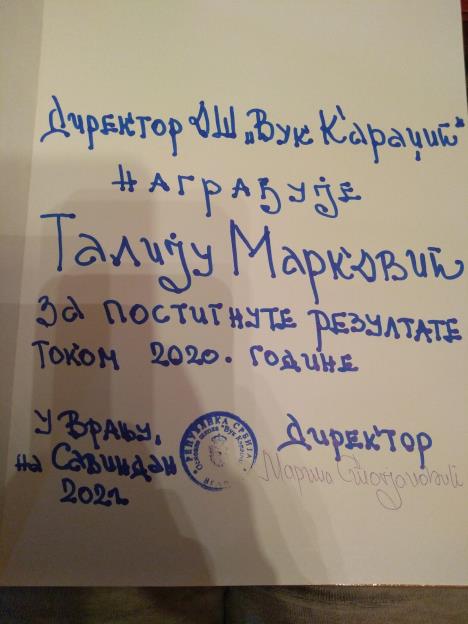 Директор ОШ „Вук Караџић“
НАГРАЂУЈЕ
Талију Марковић
За постигнуте резултате
током 2020. године
У Врању,
на Савиндан
2021.
РЕПУБЛИКА СРБИЈА
Директор